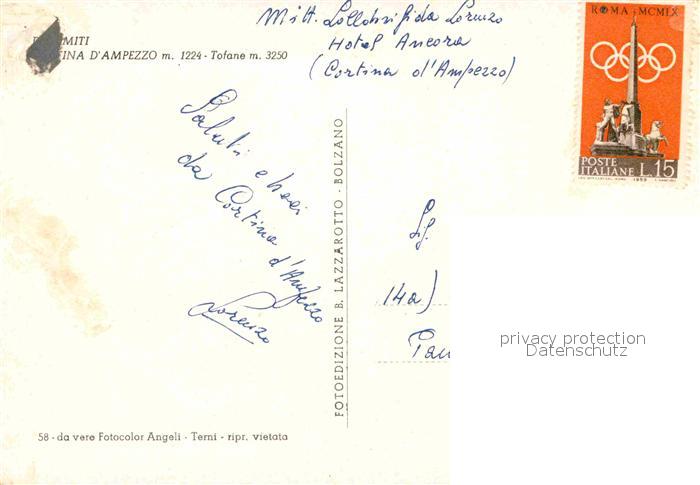 Mitt. Lollobrigida Lorenzo
Hotel Ancora
(Cortina d'Ampezzo)
ROMA MCMLX
POSTE
ITALIANE L.15
1959
MITI
INA D'AMPEZZO m. 1224 - Tofane m. 3250
Saluti e baci
da Cortina
d'Ampezzo
Lorenzo
FOTOEDIZIONE B. LAZZAROTTO - BOLZANO
Sig.
14a)
privacy protection
Datenschutz
58 - da vere Fotocolor Angeli - Terni - ripr. vietata